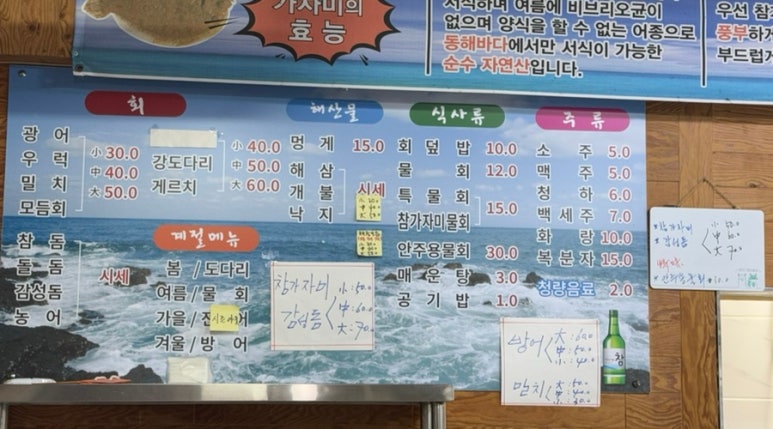 가자미의
효능
서식하며 여름에 비브리오균이
없으며 양식을 할 수 없는 어종으로
동해바다에서만 서식이 가능한
순수 자연산입니다.
우선 참
풍부하게
부드럽게
회
광어
우럭
밀치
모듬회
小 30.0
中 40.0
大 50.0
강도다리
게르치
小 40.0
中 50.0
大 60.0
참돔
돌돔
감성돔
농어
시세
계절메뉴
봄 / 도다리
여름 / 물회
가을 /
겨울 / 방어
해산물
멍게 15.0
해삼
개불
낙지
시세
식사류
회덮밥 10.0
물회 12.0
특물회
참가자미물회
15.0
안주용물회 30.0
매운탕 3.0
공기밥 1.0
주류
소주 5.0
맥주 5.0
청하 6.0
백세주 7.0
화랑 10.0
복분자 15.0
청량음료 2.0
참가자미
감성돔
小 : 50.0
中 : 60.0
大 : 70.0
방어
大 : 60.0
中 : 50.0
小 : 40.0
밀치
大 : 50.0
中 : 40.0
小 : 30.0
참
참가자미
감성돔
小 50.0
中 60.0
大 70.0